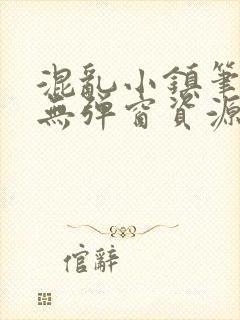 混亂小鎮筆
無彈窗資源
倌辭